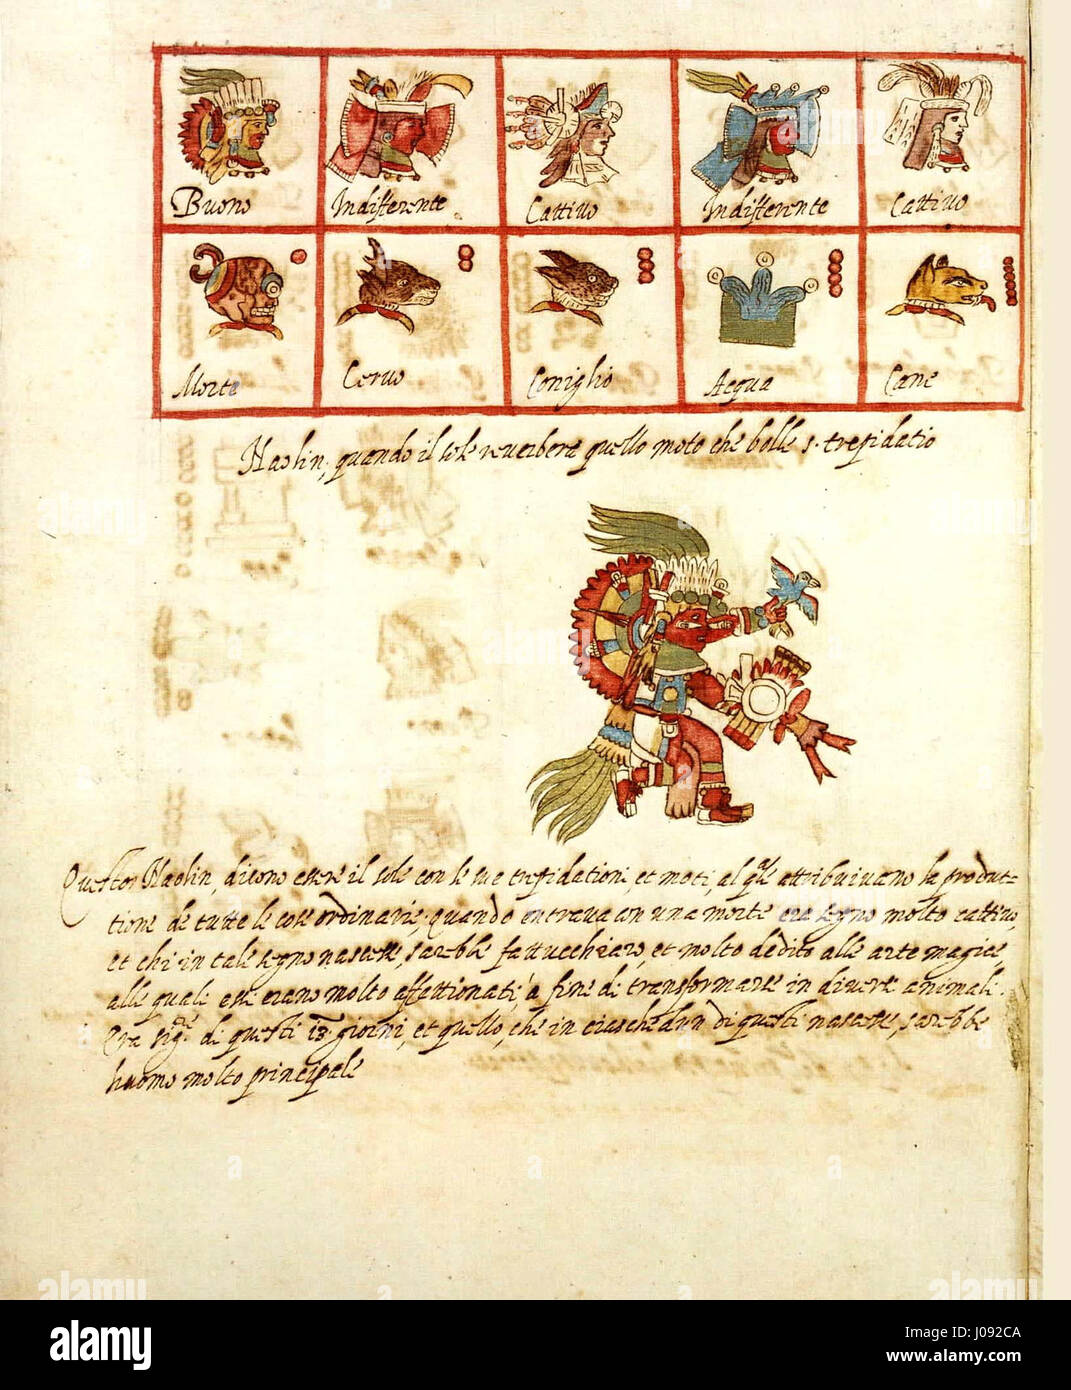 Buono Indifferente Cattiuo Indifferente Cattiuo
Morte Ceruo Coniglio Acqua Cane
Naolin, quando il sole reuerbera quello moto che bolle s. trepidatio
Naolin, dicono essere il sole con le sue trepidationi, et moti, al qle attribuiuano la produt-
tione de tutte le cose ordinarie. Quando entraua con una morte era segno molto cattiuo,
et chi in tale segno nascesse, sarebbe fattucchiaro, et molto dedito alle arte magice,
alle quali essi erano molto affettionati, à fine di transformarse in diuersi animali.
Era sigre di questi 13 giorni, et quello, che in ciaschedun di questi nascesse, sarebbe
huomo molto principale
alamy
Image ID: J092CA
www.alamy.com